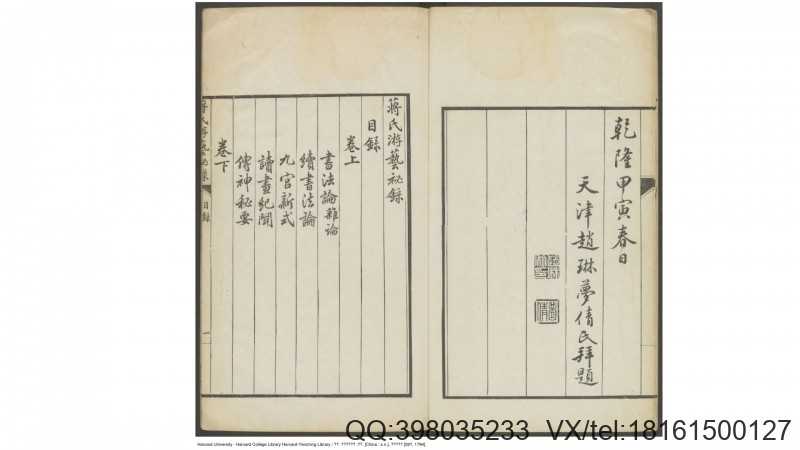 乾隆甲寅春日
天津趙琳夢倩氏拜題
蔣氏游藝祕錄
目錄
卷上
書法論雜論
續書法論
九宮新式
讀畫紀聞
傳神秘要
卷下
蔣氏游藝祕錄 目錄 一
QQ:398035233 VX/tel:18161500127